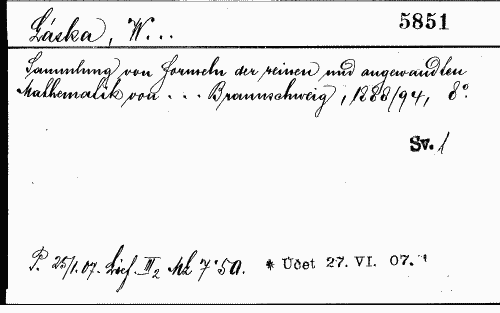 Láska, W... 5851
Sammlung von Formeln der reinen und angewandten
Mathematik von ... Braunschweig, 1888/94, 8°.
Sv. 1
P. 25/1.07. Lief. III2 Mk 7·50. * Účet 27. VI. 07.